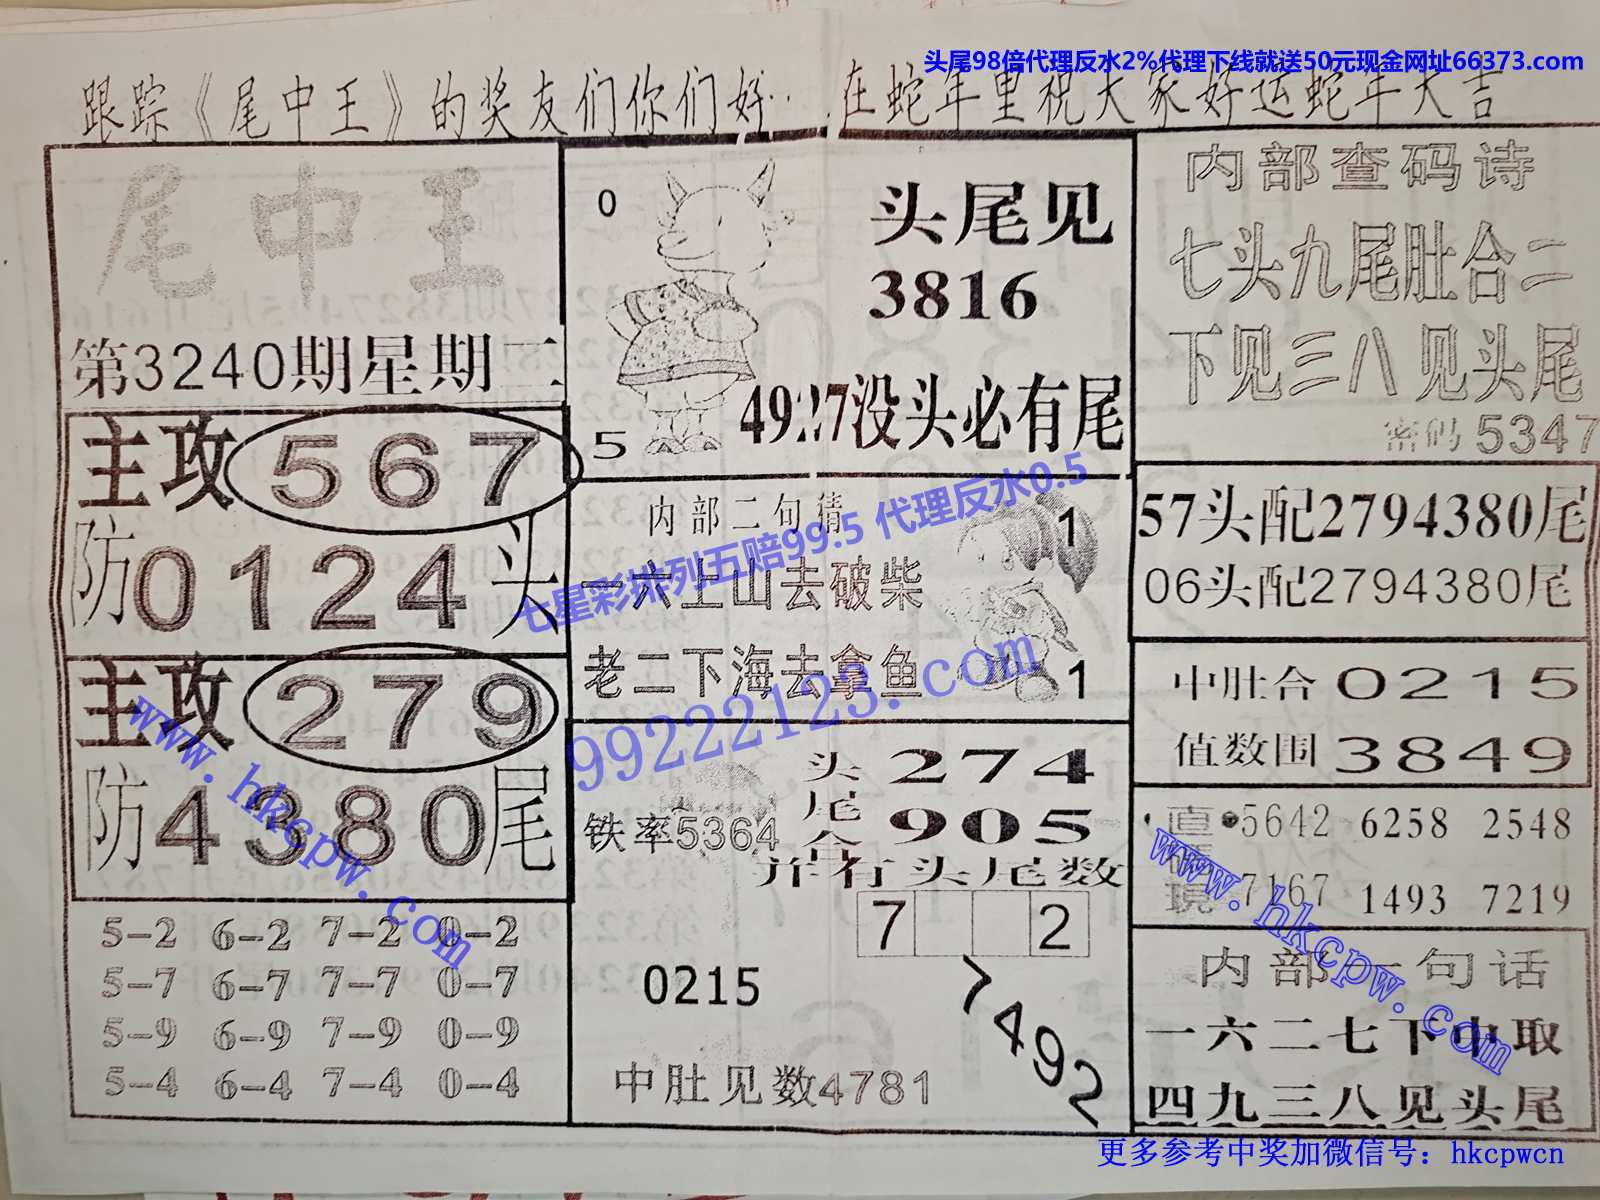 头尾98倍代理反水2%代理下线就送50元现金网址66373.com
跟踪《尾中王》的奖友们你们好··在蛇年里祝大家好运蛇年大吉
尾中王
第3240期星期二
主攻567
防0124头
主攻279
防4380尾
5-2 6-2 7-2 0-2
5-7 6-7 7-7 0-7
5-9 6-9 7-9 0-9
5-4 6-4 7-4 0-4
0
头尾见
3816
4927没头必有尾
5
内部二句猜
1
一六上山去破柴
老二下海去拿鱼
1
七星彩排列五赔99.5 代理反水0.5
99222123.com
头尾合
274
905
铁率5364
并有头尾数
7 2
0215
7492
中肚见数4781
内部查码诗
七头九尾肚合二
下见三八见头尾
密码5347
57头配2794380尾
06头配2794380尾
中肚合0215
值数围3849
5642 6258 2548
7167 1493 7219
内部一句话
一六二七下中取
四九三八见头尾
www.hkcpw.com
www.hkcpw.com
更多参考中奖加微信号：hkcpwcn